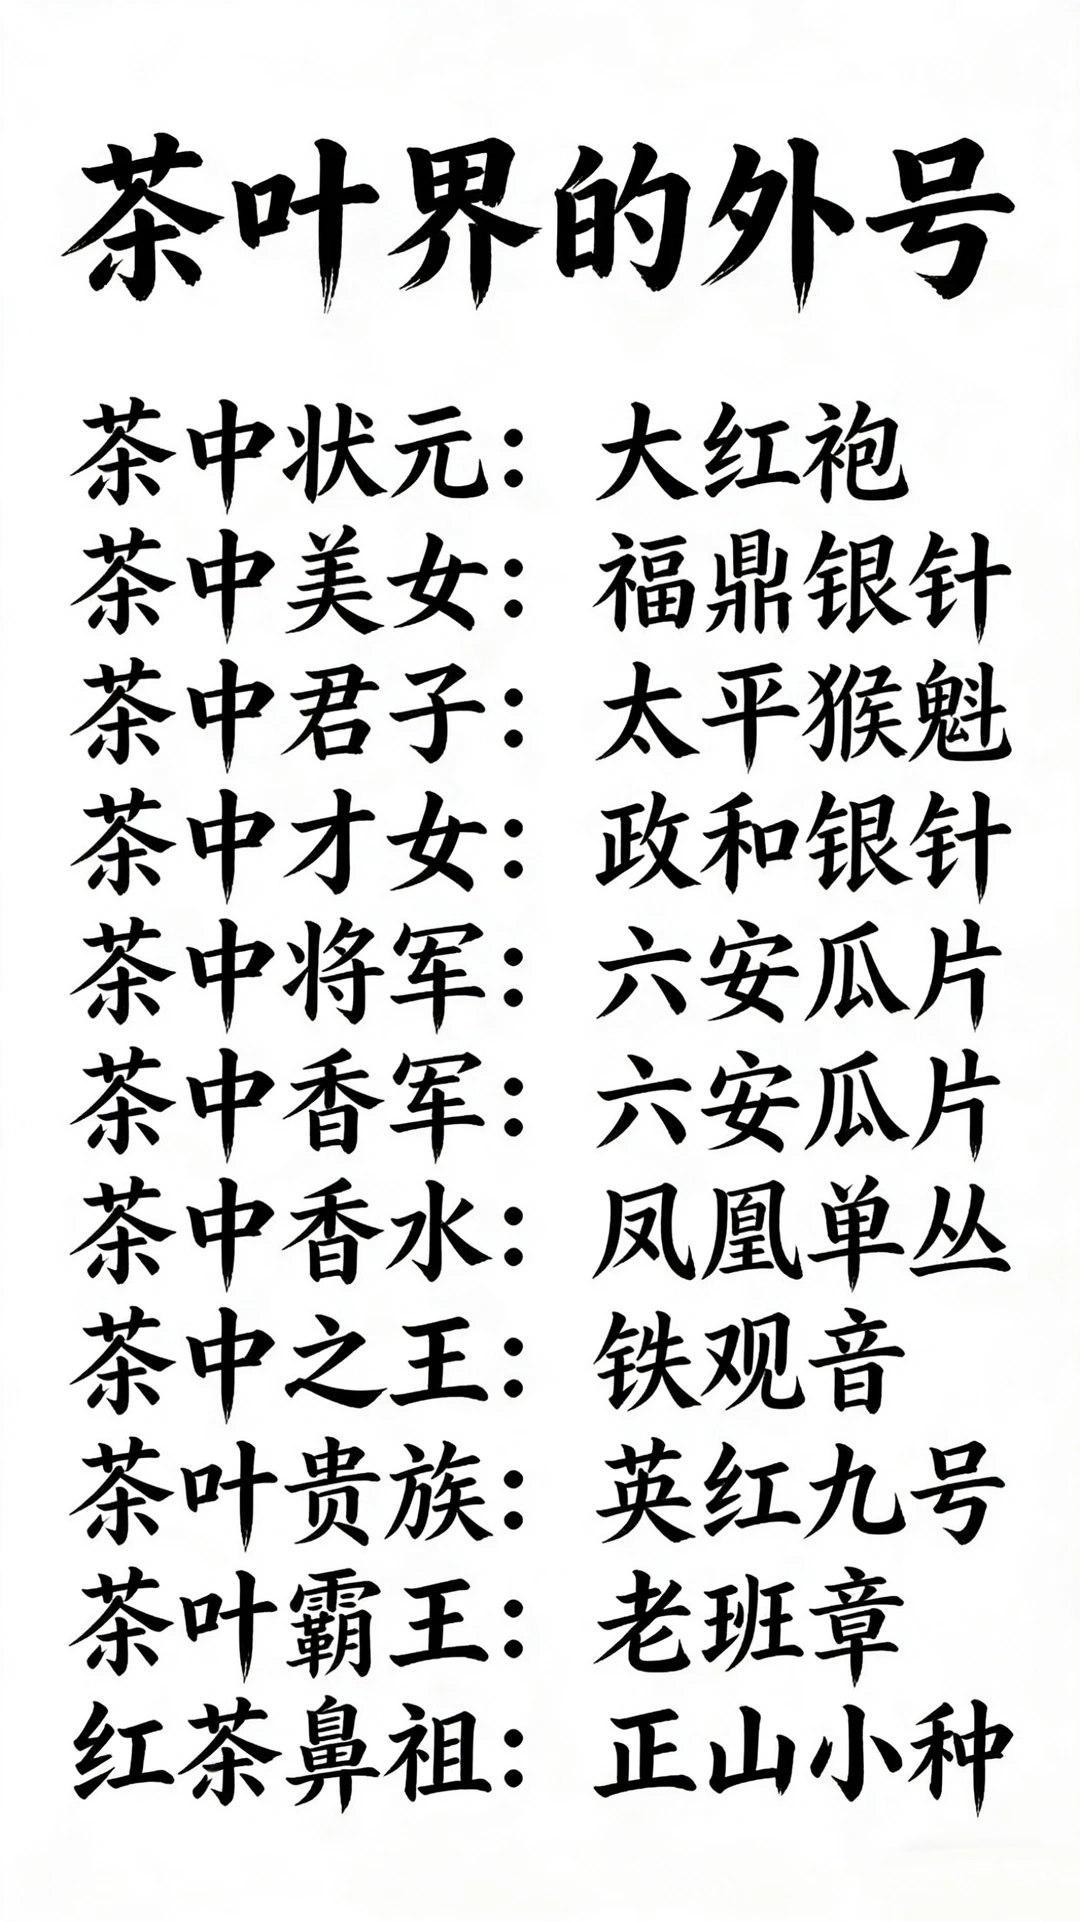 茶叶界的外号
茶中状元：大红袍
茶中美女：福鼎银针
茶中君子：太平猴魁
茶中才女：政和银针
茶中将军：六安瓜片
茶中香军：六安瓜片
茶中香水：凤凰单丛
茶中之王：铁观音
茶叶贵族：英红九号
茶叶霸王：老班章
红茶鼻祖：正山小种